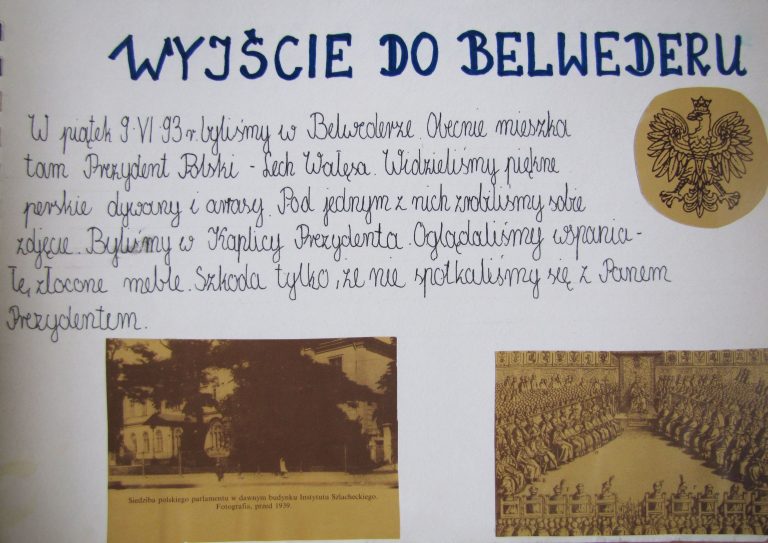 WYJŚCIE DO BELWEDERU
W piątek 9.VI.93r. byliśmy w Belwederze. Obecnie mieszka
tam Prezydent Polski - Lech Wałęsa. Widzieliśmy piękne
perskie dywany i arrasy. Pod jednym z nich zrobiliśmy sobie
zdjęcie. Byliśmy w Kaplicy Prezydenta. Oglądaliśmy wspania-
łe, złocone meble. Szkoda tylko, że nie spotkaliśmy się z Panem
Prezydentem.
Siedziba polskiego parlamentu w dawnym budynku Instytutu Szlacheckiego.
Fotografia, przed 1939.